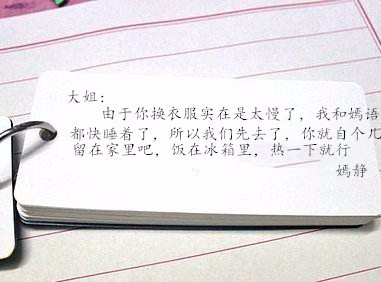 大姐：
由于你换衣服实在是太慢了，我和嫣语
都快睡着了，所以我们先去了，你就自个儿
留在家里吧，饭在冰箱里，热一下就行
嫣静